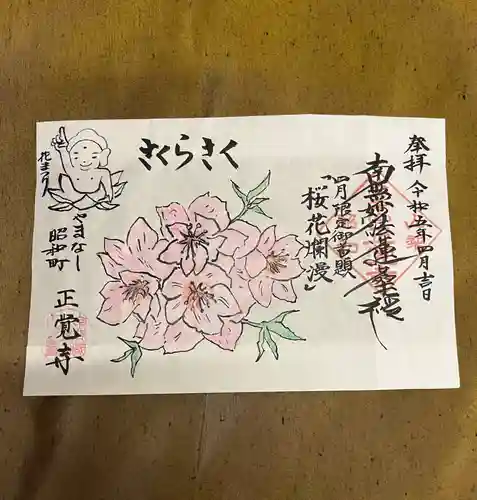 奉拝 令和五年四月吉日
南無妙法蓮華経
四月限定御首題
「桜花爛漫」
さくらさく
花まつり
やまなし
昭和町
正覚寺